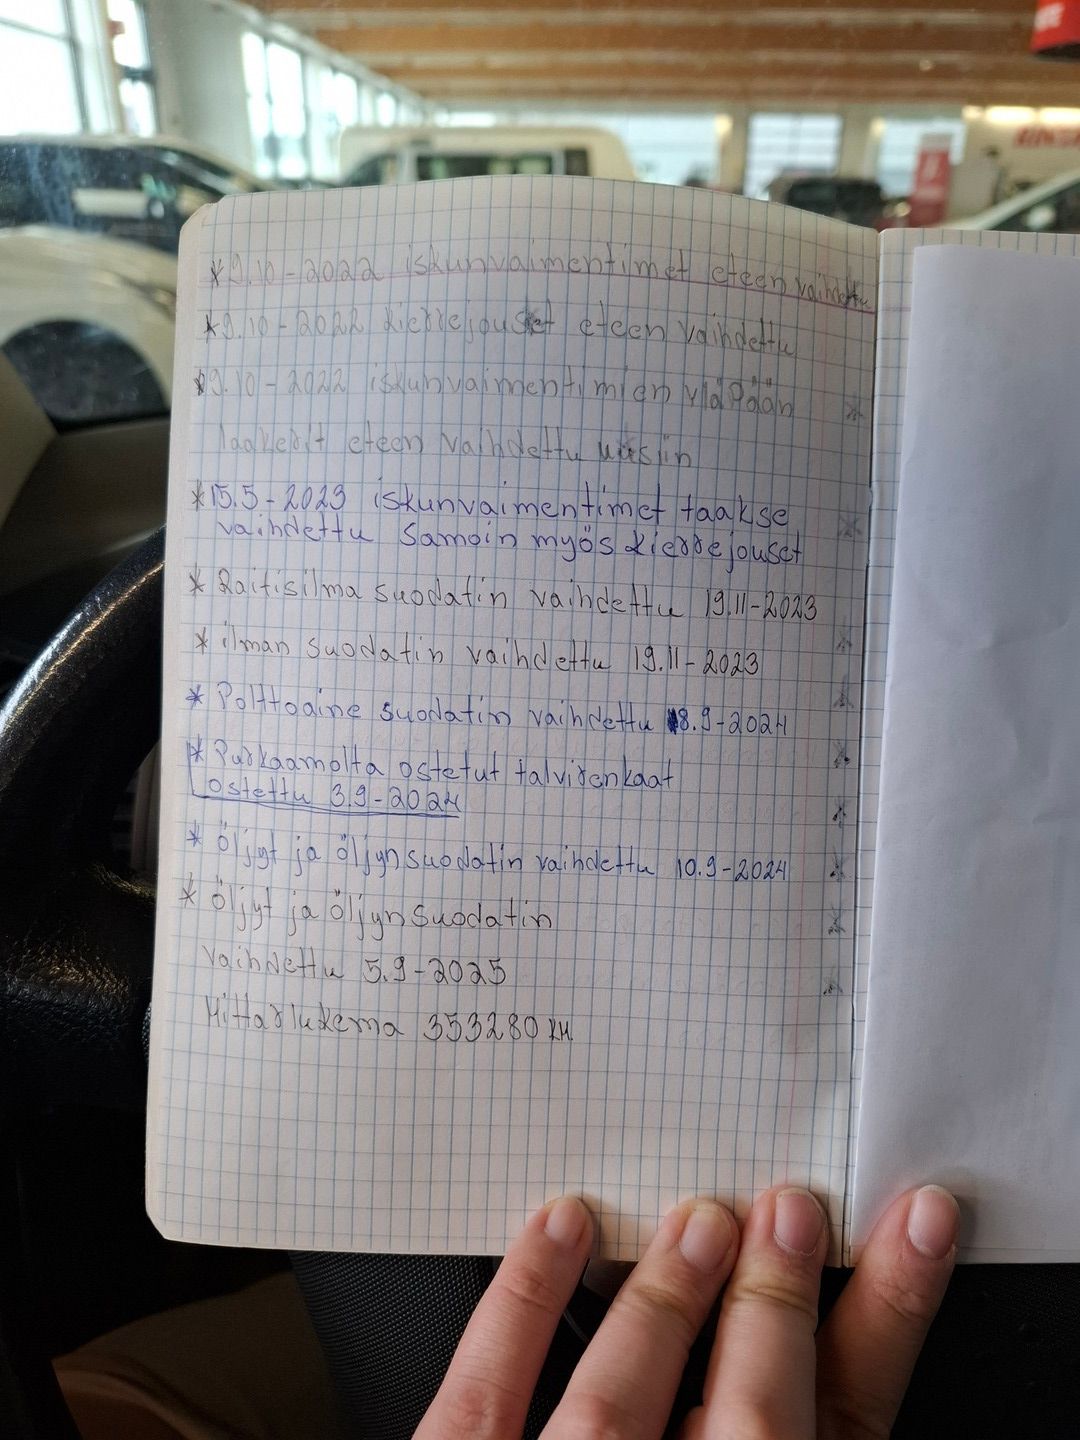 * 9.10-2022 iskunvaimentimet eteen vaihdettu
* 9.10-2022 kierrejouset eteen vaihdettu
* 9.10-2022 iskunvaimentimien yläpään
laakerit eteen vaihdettu uusiin
* 15.5-2023 iskunvaimentimet taakse
vaihdettu samoin myös kierrejouset
* Raitisilma suodatin vaihdettu 19.11-2023
* ilman suodatin vaihdettu 19.11-2023
* Polttoaine suodatin vaihdettu 8.9-2024
* Purkaamolta ostetut talvirenkaat
ostettu 3.9-2024
* Öljyt ja öljynsuodatin vaihdettu 10.9-2024
* Öljyt ja öljynsuodatin
vaihdettu 5.9-2025
Mittarlukema 353280 KM